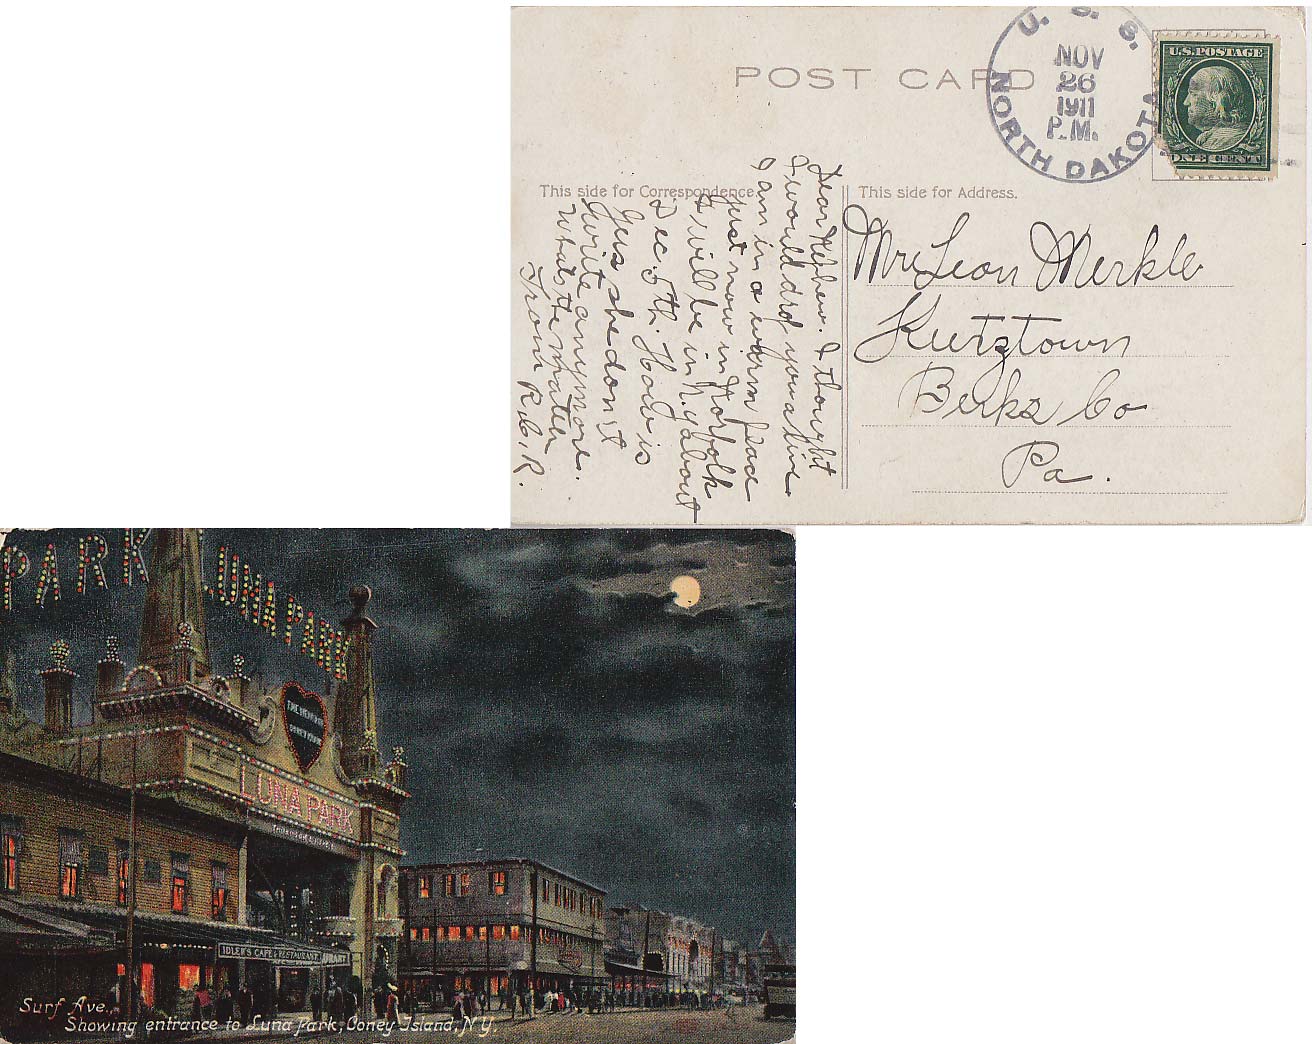 POST CARD
U. S. S.
NORTH DAKOTA
NOV
26
1911
P.M.
U.S. POSTAGE
ONE CENT
This side for Correspondence
This side for Address.
Dear Nephew. I thought
I would drop you a line
I am in a warm place
just now in Norfolk
I will be in N.Y. about
Dec 5th. How is
Gus she don't
write anymore.
What's the matter
From R.C.R.
Mr Leon Merkle
Kutztown
Berks Co
Pa.
PARK
LUNA PARK
THE HEART OF
CONEY ISLAND
LUNA PARK
IDLER'S CAFE & RESTAURANT
Surf Ave.,
Showing entrance to Luna Park, Coney Island, N.Y.